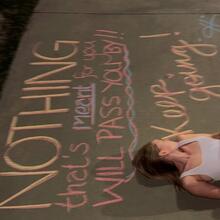 NOTHING
that's meant for you
WILL PASS YOU BY!!
Keep.
going.